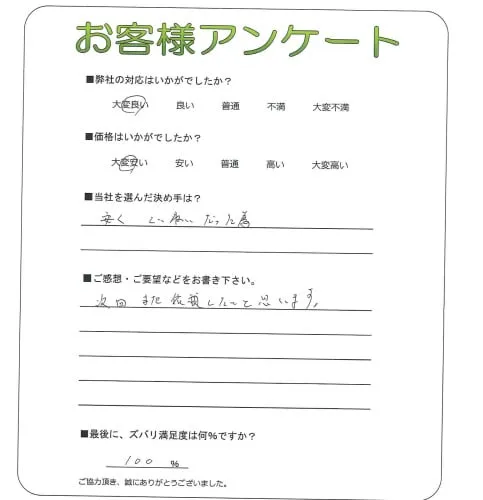 お客様アンケート
■弊社の対応はいかがでしたか？
大変良い 良い 普通 不満 大変不満
■価格はいかがでしたか？
大変安い 安い 普通 高い 大変高い
■当社を選んだ決め手は？
安く だった為
■ご感想・ご要望などをお書き下さい。
次回 また依頼したいと思います。
■最後に、ズバリ満足度は何％ですか？
100 ％
ご協力頂き、誠にありがとうございました。